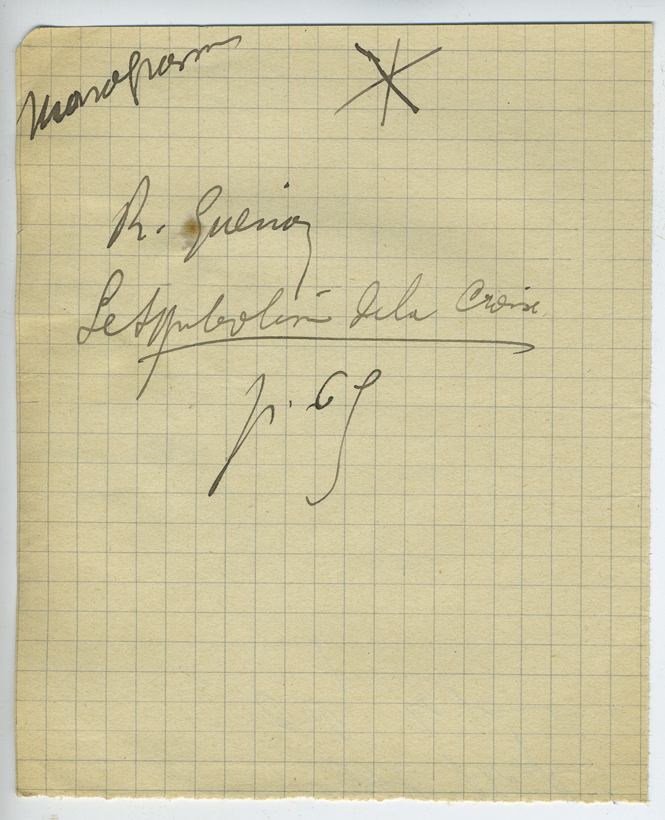 Monogramm
R. Guenon
Le Symbolisme de la Croix
p. 69